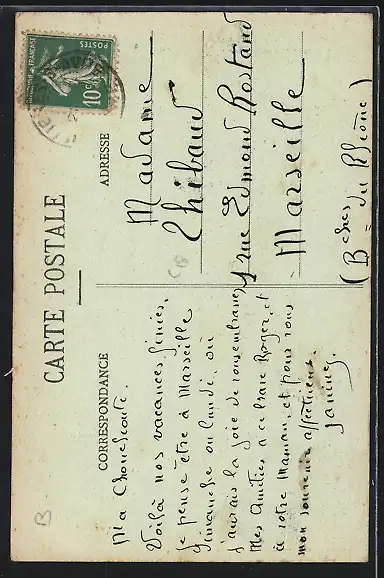 CARTE POSTALE
CORRESPONDANCE
ADRESSE
POSTES
10c
Ma
Voilà nos vacances finies.
Je pense être à Marseille
Dimanche ou Lundi, où
J'aurais la joie de vous embrasser
Mes Amitiés à ce brave Roger, et
à votre Maman, et pour vous
mon souvenir affectueux.
Janine
Madame
Thibaud
1 rue Edmond Rostand
Marseille
(Bches du Rhône)
B